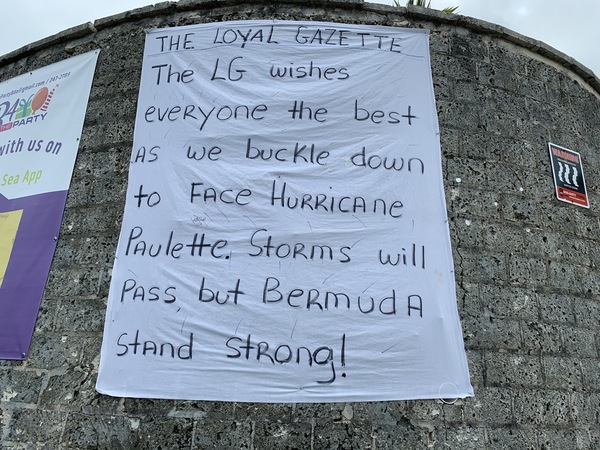 THE LOYAL GAZETTE
The LG wishes
everyone the best
as we buckle down
to FACE HURRICANE
Paulette. STORMS will
PASS, but BERMUDA
Stand strong!
PARTY
with us on
Sea App